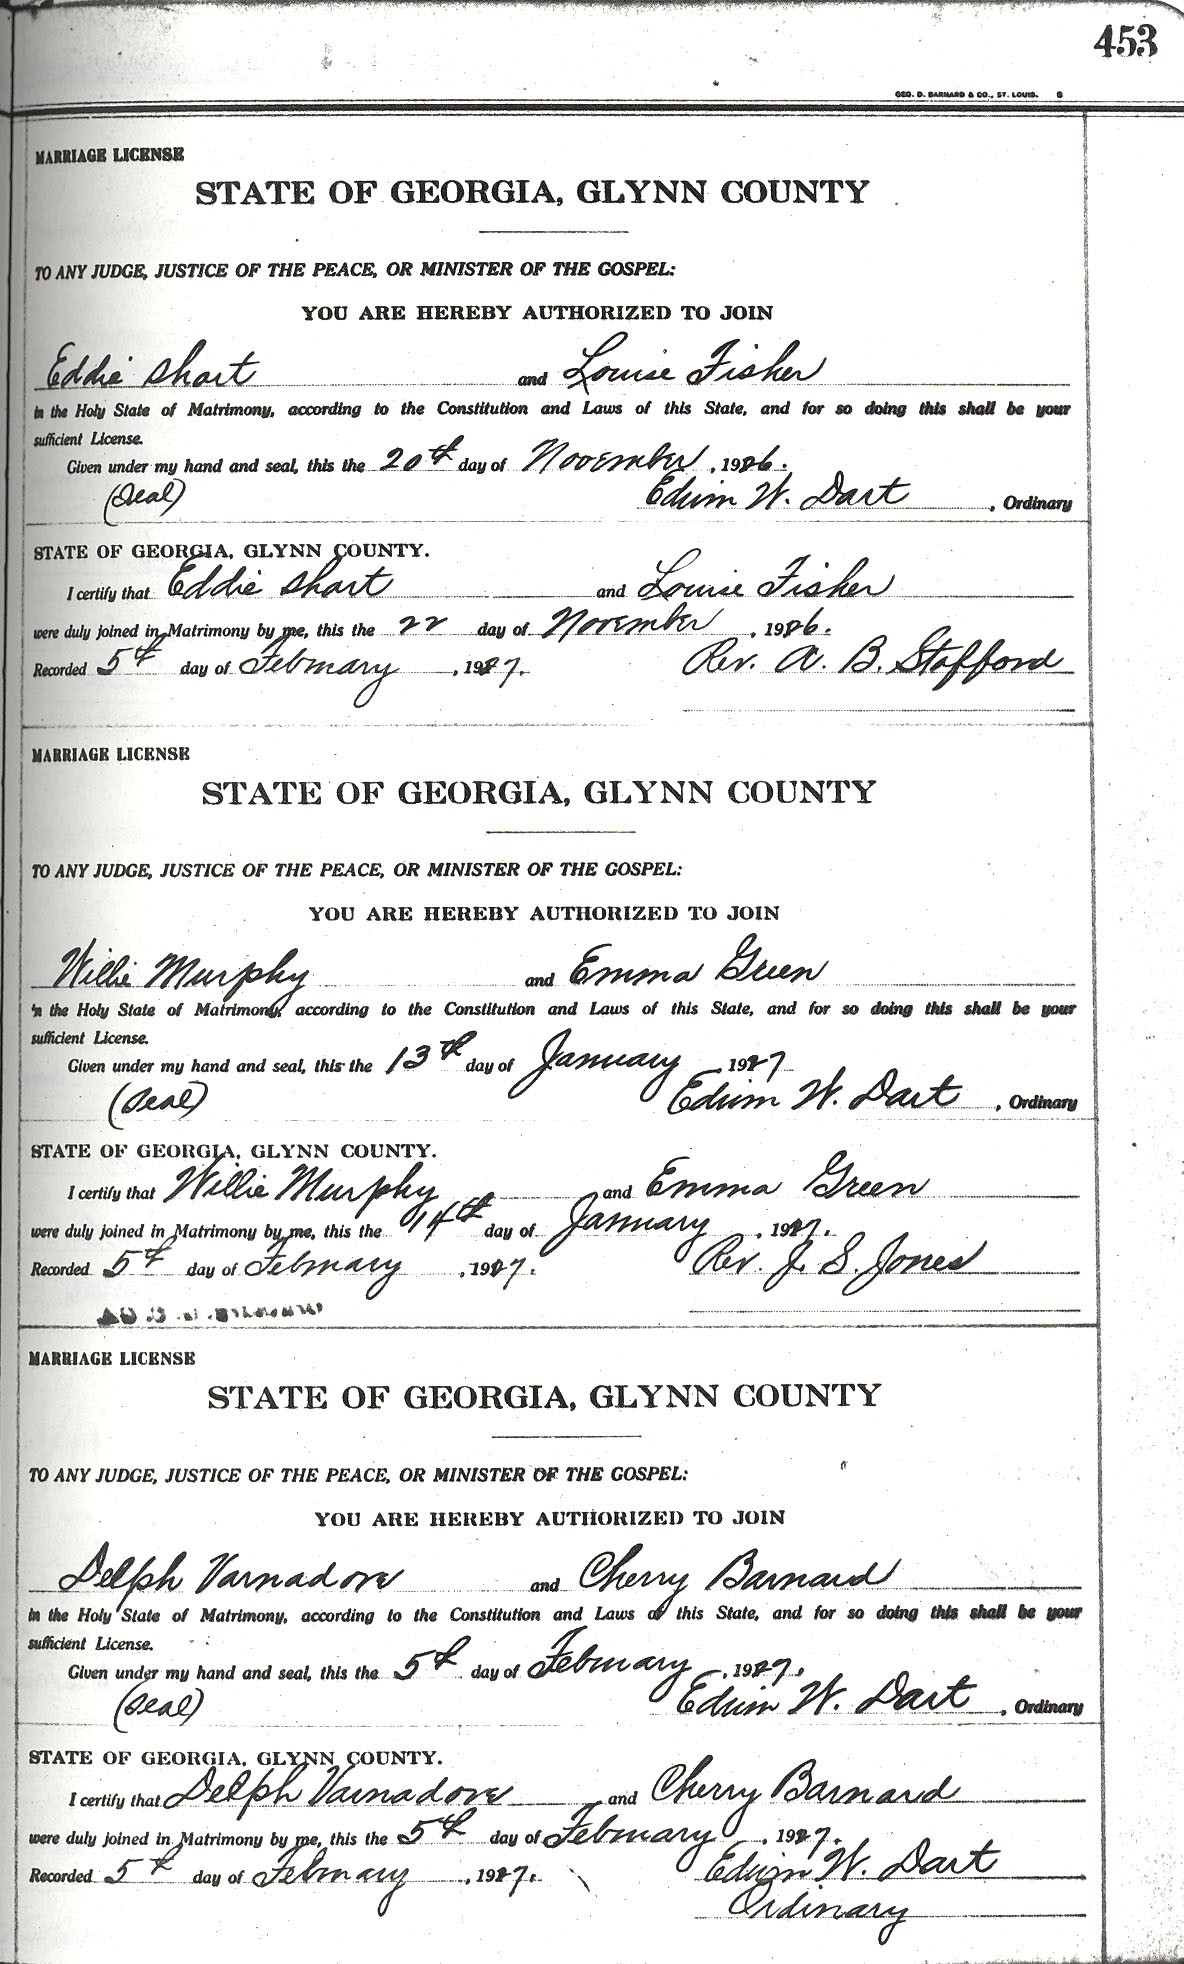 453
GEO. D. BARNARD & CO., ST. LOUIS.
MARRIAGE LICENSE
STATE OF GEORGIA, GLYNN COUNTY
TO ANY JUDGE, JUSTICE OF THE PEACE, OR MINISTER OF THE GOSPEL:
YOU ARE HEREBY AUTHORIZED TO JOIN
Eddie Short and Louise Fisher
in the Holy State of Matrimony, according to the Constitution and Laws of this State, and for so doing this shall be your
sufficient License.
Given under my hand and seal, this the 20th day of November, 1926.
(Seal) Edwin W. Dart, Ordinary
STATE OF GEORGIA, GLYNN COUNTY.
I certify that Eddie Short and Louise Fisher
were duly joined in Matrimony by me, this the 22 day of November, 1926.
Recorded 5th day of February, 1927. Rev. A. B. Stafford
MARRIAGE LICENSE
STATE OF GEORGIA, GLYNN COUNTY
TO ANY JUDGE, JUSTICE OF THE PEACE, OR MINISTER OF THE GOSPEL:
YOU ARE HEREBY AUTHORIZED TO JOIN
Willie Murphy and Emma Green
in the Holy State of Matrimony, according to the Constitution and Laws of this State, and for so doing this shall be your
sufficient License.
Given under my hand and seal, this the 13th day of January, 1927
(Seal) Edwin W. Dart, Ordinary
STATE OF GEORGIA, GLYNN COUNTY.
I certify that Willie Murphy and Emma Green
were duly joined in Matrimony by me, this the 14th day of January, 1927.
Recorded 5th day of February, 1927. Rev. J. S. Jones
MARRIAGE LICENSE
STATE OF GEORGIA, GLYNN COUNTY
TO ANY JUDGE, JUSTICE OF THE PEACE, OR MINISTER OF THE GOSPEL:
YOU ARE HEREBY AUTHORIZED TO JOIN
Delph Varnadore and Cherry Barnard
in the Holy State of Matrimony, according to the Constitution and Laws of this State, and for so doing this shall be your
sufficient License.
Given under my hand and seal, this the 5th day of February, 1927.
(Seal) Edwin W. Dart, Ordinary
STATE OF GEORGIA, GLYNN COUNTY.
I certify that Delph Varnadore and Cherry Barnard
were duly joined in Matrimony by me, this the 5th day of February, 1927.
Recorded 5th day of February, 1927. Edwin W. Dart
Ordinary